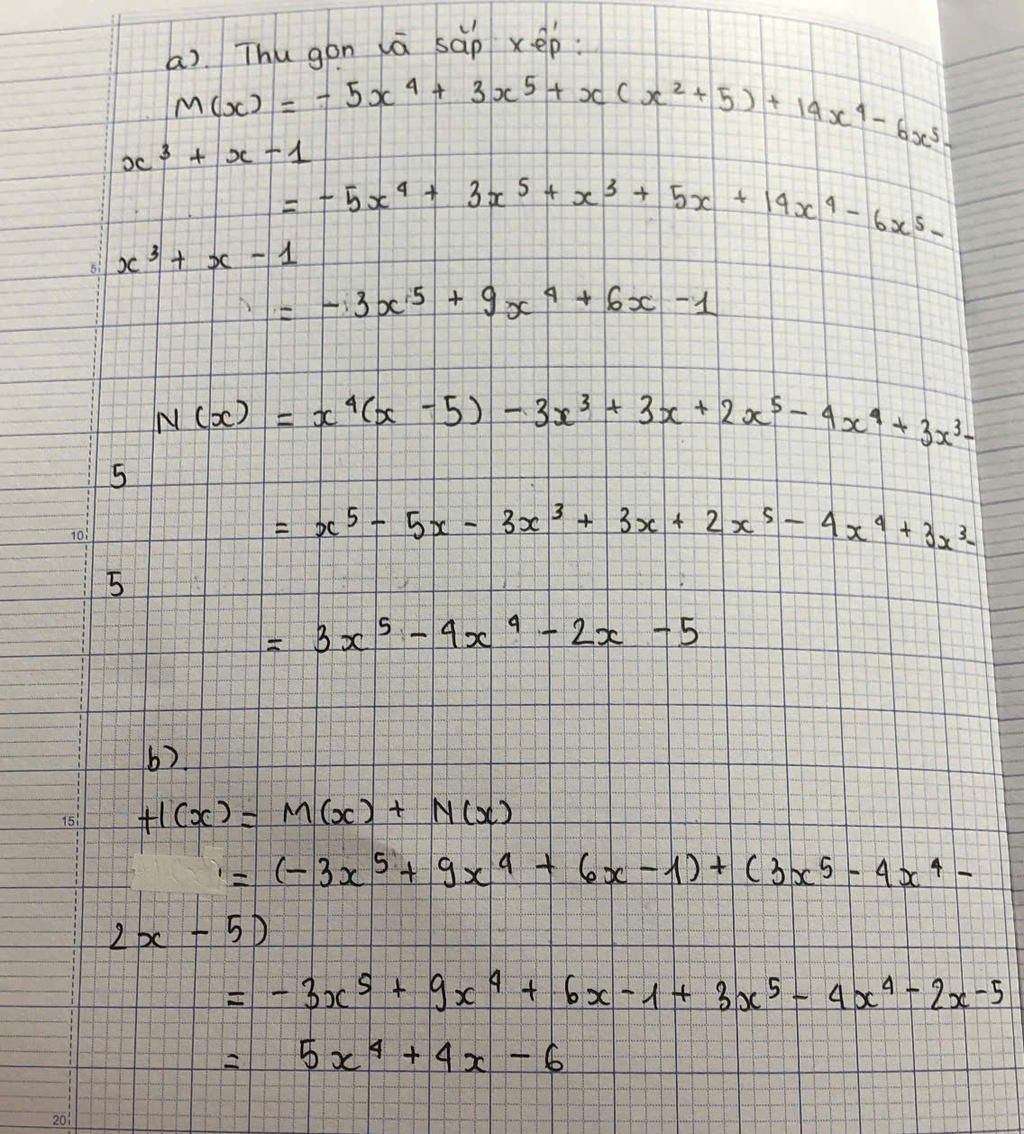 a). Thu gọn và sắp xếp:
M(x) = -5x⁴ + 3x⁵ + x(x² + 5) + 14x⁴ - 6x⁵ -
x³ + x - 1
= -5x⁴ + 3x⁵ + x³ + 5x + 14x⁴ - 6x⁵ -
5
x³ + x - 1
= -3x⁵ + 9x⁴ + 6x - 1
N(x) = x⁴(x - 5) - 3x³ + 3x + 2x⁵ - 4x⁴ + 3x³ -
5
10
= x⁵ - 5x - 3x³ + 3x + 2x⁵ - 4x⁴ + 3x³ -
5
= 3x⁵ - 4x⁴ - 2x - 5
b).
15
H(x) = M(x) + N(x)
= (-3x⁵ + 9x⁴ + 6x - 1) + (3x⁵ - 4x⁴ -
2x - 5)
= -3x⁵ + 9x⁴ + 6x - 1 + 3x⁵ - 4x⁴ - 2x - 5
= 5x⁴ + 4x - 6
20